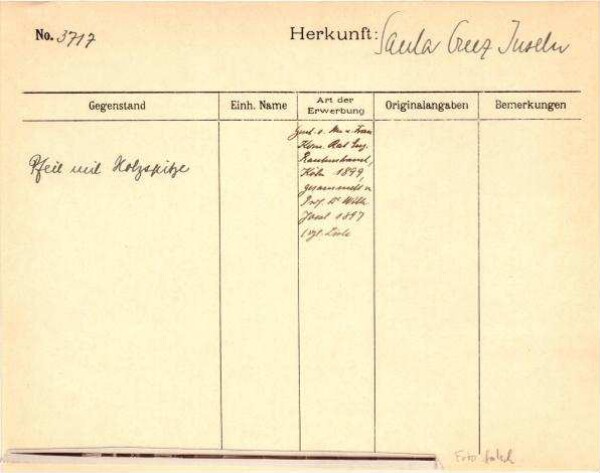 No. 3717
Herkunft: Santa Cruz Inseln
Gegenstand
Einh. Name
Art der Erwerbung
Originalangaben
Bemerkungen
Pfeil mit Holzspitze
Gesch. v. Hrn u. Frau
Kom. Rat Eug.
Rautenstrauch,
Köln 1899,
gesammelt v.
Prof. Dr Wilh.
Joest 1897